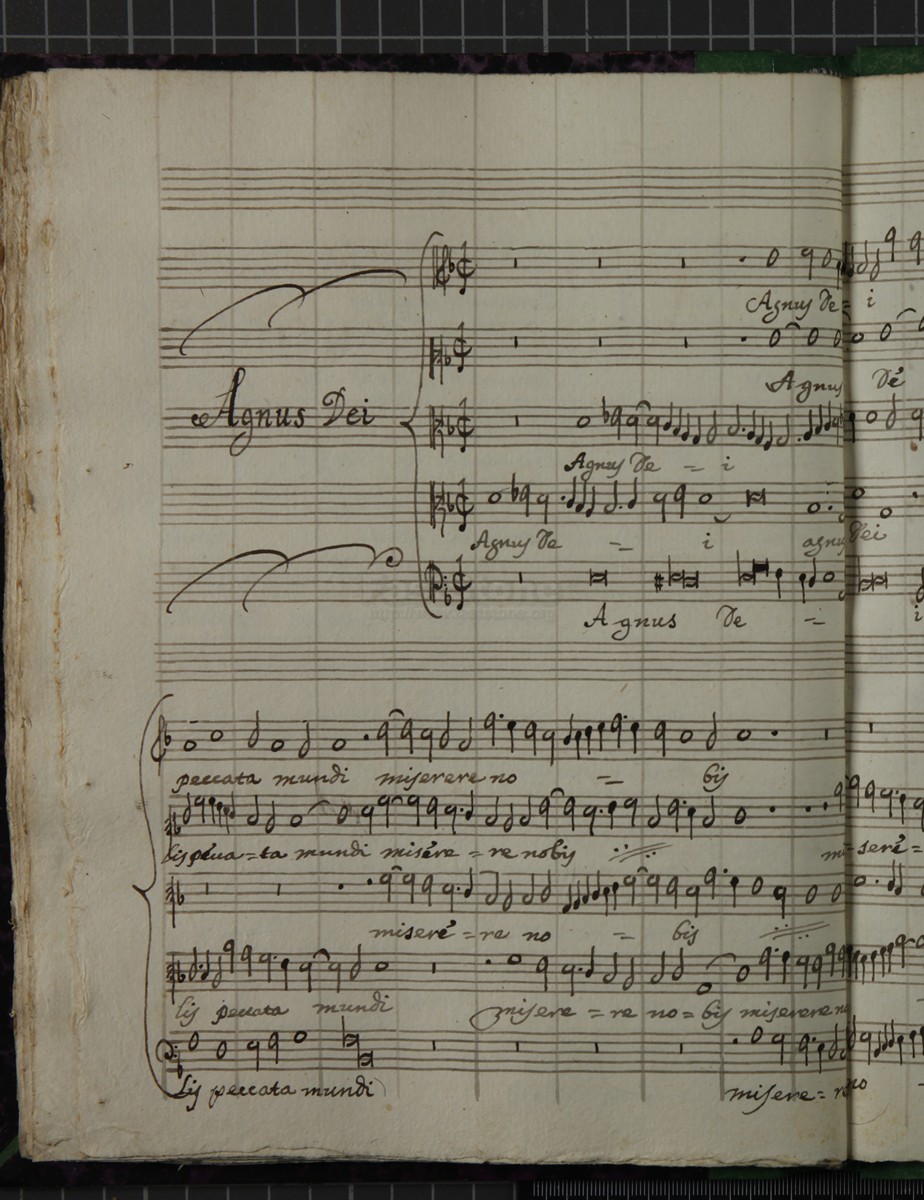 Agnus De = i
Agnus Dé
Agnus Dei
Agnus De = i
Agnus De = i agnus Dei
Agnus De = i
peccata mundi miserere no = bis
lis pécca = ta mundi misére = re nobis mi = seré =
miseré = re no = bis
lis peccata mundi misere = re no = bis miserere no
lis peccata mundi misere = re no